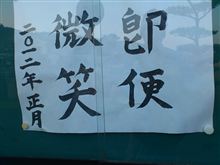 即便
微笑
二〇一二年正月